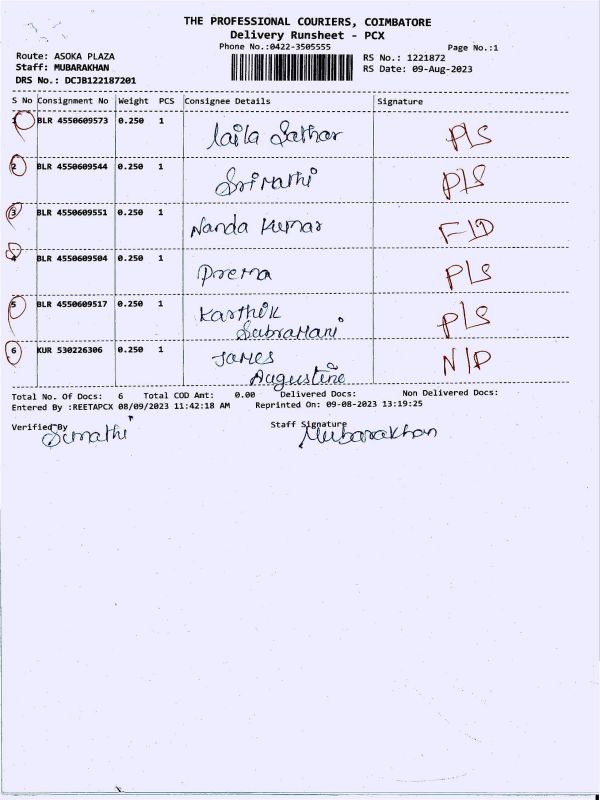 THE PROFESSIONAL COURIERS, COIMBATORE
Delivery Runsheet - PCX
Phone No.:0422-3505555 Page No.:1
Route: ASOKA PLAZA RS No.: 1221872
Staff: MUBARAKHAN RS Date: 09-Aug-2023
DRS No.: DCJB122187201
S No Consignment No Weight PCS Consignee Details Signature
1 BLR 4550609573 0.250 1 Laila Sathar P/S
2 BLR 4550609544 0.250 1 Srimathi P/S
3 BLR 4550609551 0.250 1 Nanda Kumar
4 BLR 4550609504 0.250 1 Prema P/S
5 BLR 4550609517 0.250 1 Karthik
Subramani P/S
6 KUR 530226306 0.250 1 James N/P
Augustine
Total No. Of Docs: 6 Total COD Amt: 0.00 Delivered Docs: Non Delivered Docs:
Entered By :REETAPCX 08/09/2023 11:42:18 AM Reprinted On: 09-08-2023 13:19:25
Verified By Staff Signature
Sumathi Mubarakhan